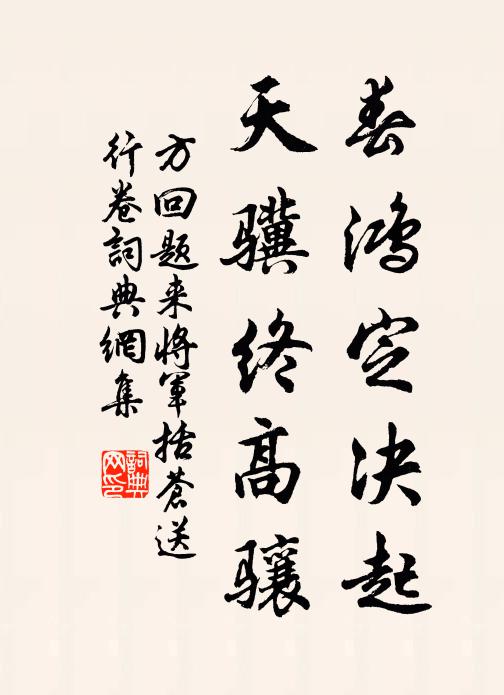 春鸿定决起
天骥终高骧
方回题来将军括苍送
行卷詞典網集
詞典
网印